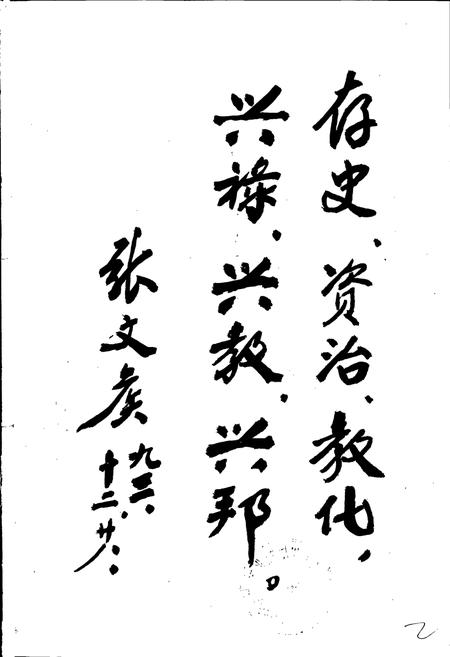 存史、资治、教化，
兴禄、兴教，兴邦。
张文
九三、
十二、廿八、
2